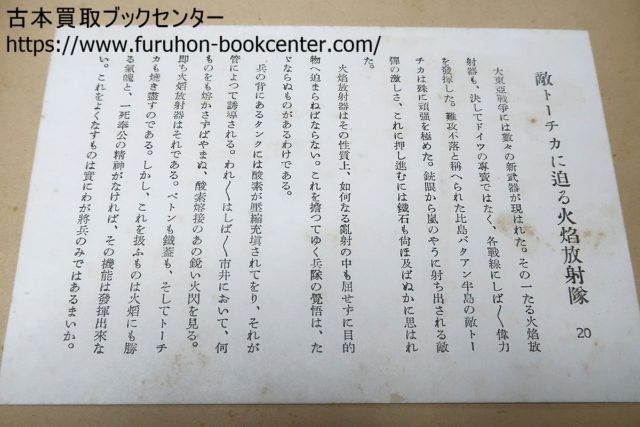 古本買取ブックセンター
https://www.furuhon-bookcenter.com/
敵トーチカに迫る火焰放射隊
20
大東亞戰爭には數々の新武器が現はれた。その一たる火焰放
射器も、決してドイツの專賣ではなく、各戰線にしば〱偉力
を發揮した。難攻不落と稱へられた比島バタアン半島の敵トー
チカは殊に頑强を極めた。銃眼から嵐のやうに射ち出される敵
彈の激しさ、これに押し進むには鐵石も尙ほ及ばぬかに思はれ
た。
火焰放射器はその性質上、如何なる亂射の中も屈せずに目的
物へ迫まらねばならない。これを擔つてゆく兵隊の覺悟は、た
ゞならぬものがあるわけである。
兵の背にあるタンクには酸素が壓縮充塡されてをり、それが
管によつて誘導される。われ〱はしば〱市井において、何
ものをも熔かさずばやまぬ、酸素熔接のあの銳い火閃を見る。
卽ち火焰放射器はそれである。ベトンも鐵蓋も、そしてトーチ
カも燒き盡すのである。しかし、これを扱ふものは火焰にも勝
る氣魄と、一死奉公の精神がなければ、その機能は發揮出來な
い。これをよくなすものは實にわが將兵のみではあるまいか。